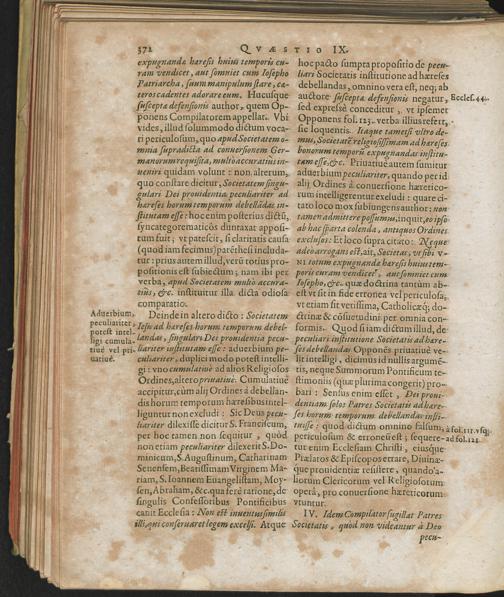 372 QVÆSTIO IX.
expugnandæ hæresis huius temporis cu-
ram vendicet, aut somniet cum Iosepho
Patriarcha, suum manipulum stare, cæ-
teros cadentes adorare eum. Hucusque
suscepta defensionis author, quem Op-
ponens Compilatorem appellat. Vbi
vides, illud solummodo dictum voca-
ri periculosum, quo apud Societatem o-
mnia supradicta ad conuersionem Ger-
manorum requisita, multò accuratius in-
ueniri quidam volunt: non alterum,
quo constare dicitur, Societatem singu-
lari Dei prouidentia peculiariter ad
hæreses horum temporum debellãdas in-
stitutam esse: hoc enim posterius dictũ,
syncategorematicῶs duntaxat apposi-
tum fuit; vt patescit, si claritatis causa
(quod iam fecimus) parẽthesi includa-
tur: prius autem illud, verũ totius pro-
positionis est subiectum; nam ibi per
verba, apud Societatem multò accura-
tiùs, &c. instituitur illa dicta odiosa
comparatio.
Deinde in altero dicto: Societatem
Iesu ad hæreses horum temporum debel-
landas, singulari Dei prouidentia pecu-
liariter institutam esse: aduerbium pe-
culiariter, duplici modo potest intelli-
gi: vno cumulatiuè ad alios Religiosos
Ordines, altero priuatiuè. Cumulatiuè
accipitur, cùm alij Ordines à debellan-
dis horum temporum hæresibus intel-
liguntur non excludi: Sic Deus pecu-
liariter dilexisse dicitur S. Franciscum,
per hoc tamen non sequitur, quòd
non etiam peculiariter dilexerit S. Do-
minicum, S. Augustinum, Catharinam
Senensem, Beatissimam Virginem Ma-
riam, S. Ioannem Euangelistam, Moy-
sen, Abraham, &c. qua ferè ratione, de
singulis Confessoribus Pontificibus
canit Ecclesia: Non est inuentus similis
illi, qui conseruaret legem excelsi. Atque
Aduerbium,
peculiariter,
potest intel-
ligi cumula-
tiuè vel pri-
uatiuè.
hoc pacto sumpta propositio de pecu-
liari Societatis institutione ad hæreses
debellandas, omnino vera est, neq; ab
auctore suscepta defensionis negatur,
sed expressè conceditur, vt ipsemet
Opponens fol. 123. verba illius refert,
sic loquentis. Itaque tametsi vltro de-
mus, Societatẽ religiosissimam ad hæreses
bonorum temporũ expugnandas institu-
tam esse, &c. Priuatiuè autem sumitur
aduerbium peculiariter, quando per id
alij Ordines à conuersione hæretico-
rum intelligerentur excludi: quare ci-
tato loco mox subiungens author: non
tamen admittere possumus, inquit, eo ipso
ab hac sparta colenda, antiquos Ordines
exclusos: Et loco supra citato: Neque
adeò arrogans est, ait, Societas, vt sibi V-
NI totum expugnandæ hæresis huius tem-
poris curam vendicet, aut somniet cum
Iosepho, &c. quæ doctrina tantum ab-
est vt sit in fide erronea vel periculosa,
vt etiam sit verissima, Catholicæq; do-
ctrinæ & cõsuetudini per omnia con-
formis. Quod si iam dictum illud, de
peculiari institutione Societatis ad hære-
ses debellandas Opponẽs priuatiuè ve-
lit intelligi, dicimus id nullis argumẽ-
tis, neque Summorum Pontificum te-
stimoniis (quæ plurima congerit) pro-
bari: Sensus enim esset, Dei proui-
dentiam solos Patres Societatis ad hære-
ses horum temporum debellandas insti-
tuisse: quod dictum omnino falsum,
periculosum & erroneũ est; sequere-
tur enim Ecclesiam Christi, eiusque
Prælatos & Episcopos errare, Diuinæ-
que prouidentiæ resistere, quando a-
liorum Clericorum vel Religiosorum
operâ, pro conuersione hæreticorum
vtuntur.
IV. Idem Compilator sugillat Patres
Societatis, quòd non videantur à Deo
pecu-
Eccles. 44.
à fol. 111. vsq;
ad fol. 121.